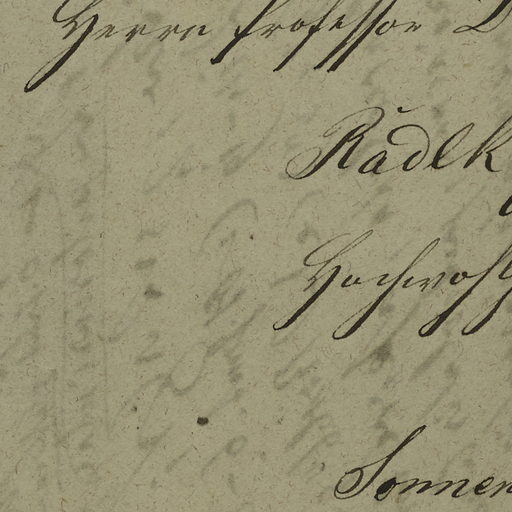 Herrn Professor D
Rädlk
Hochwohlg
Sonnen